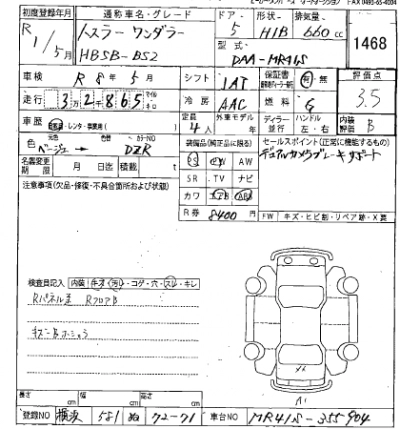 FAX 0493-65-4004
初度登録年月 通称車名・グレード ドア 形状 排気量
R1/5月 ハスラー ワンダラー 5 H/B 660cc 1468
HBSB-B52 型式 DAA-MR41S
車検 R 8年 5月 シフト IAT 保証書 有・無 評価点
走行 3万2千865 km 冷房 AAC 燃料 G 3.5
車歴 自家用・レンタ・事業用( ) 定員 4人 外車モデル ディーラー 並行 ハンドル 左・右 内装評価 B
色 ベージュ→ カラーNO DZR 装備品(純正品に限る) セールスポイント(正常に機能するもの)
名義変更期限 月 日迄 積載 t PS PW AW デュアルカメラブレーキサポート
注意事項(欠品・修復・不具合箇所および状況) SR TV ナビ
カワ エアB ABS
R券 8400円 FW キズ・ヒビ割・リペア跡・X要
検査員記入 内装 キズ・汚レ・コゲ・穴・スレ・キレ
RパネルW RフロアB
キズ・B・ホシュウ
長さ cm 幅 cm 高さ cm
登録NO 横浜 581 ぬ 72-71 車台NO MR41S-355904